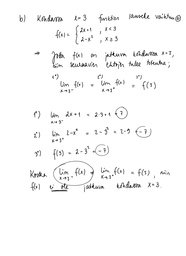 b) Kohdassa x=3 funktion lauseke vaihtuu
f(x) = { 2x+1 , x<3
2-x² , x≥3
Jotta f(x) on jatkuva kohdassa x=3,
niin seuraavien ehtojen tulee täyttyä:
1°) 2°) 3°)
lim x→3⁻ f(x) = lim x→3⁺ f(x) = f(3)
1°) lim x→3⁻ 2x+1 = 2·3+1 = 7
2°) lim x→3⁺ 2-x² = 2-3² = 2-9 = -7
3°) f(3) = 2-3² = -7
Koska lim x→3⁻ f(x) ≠ lim x→3⁺ f(x) = f(3), niin
f(x) ei ole jatkuva kohdassa x=3.